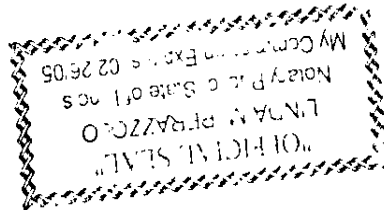 "OFFICIAL SEAL"
LINDA M PERAZZOLO
Notary Public State of Illinois
My Commission Expires 02 26 05